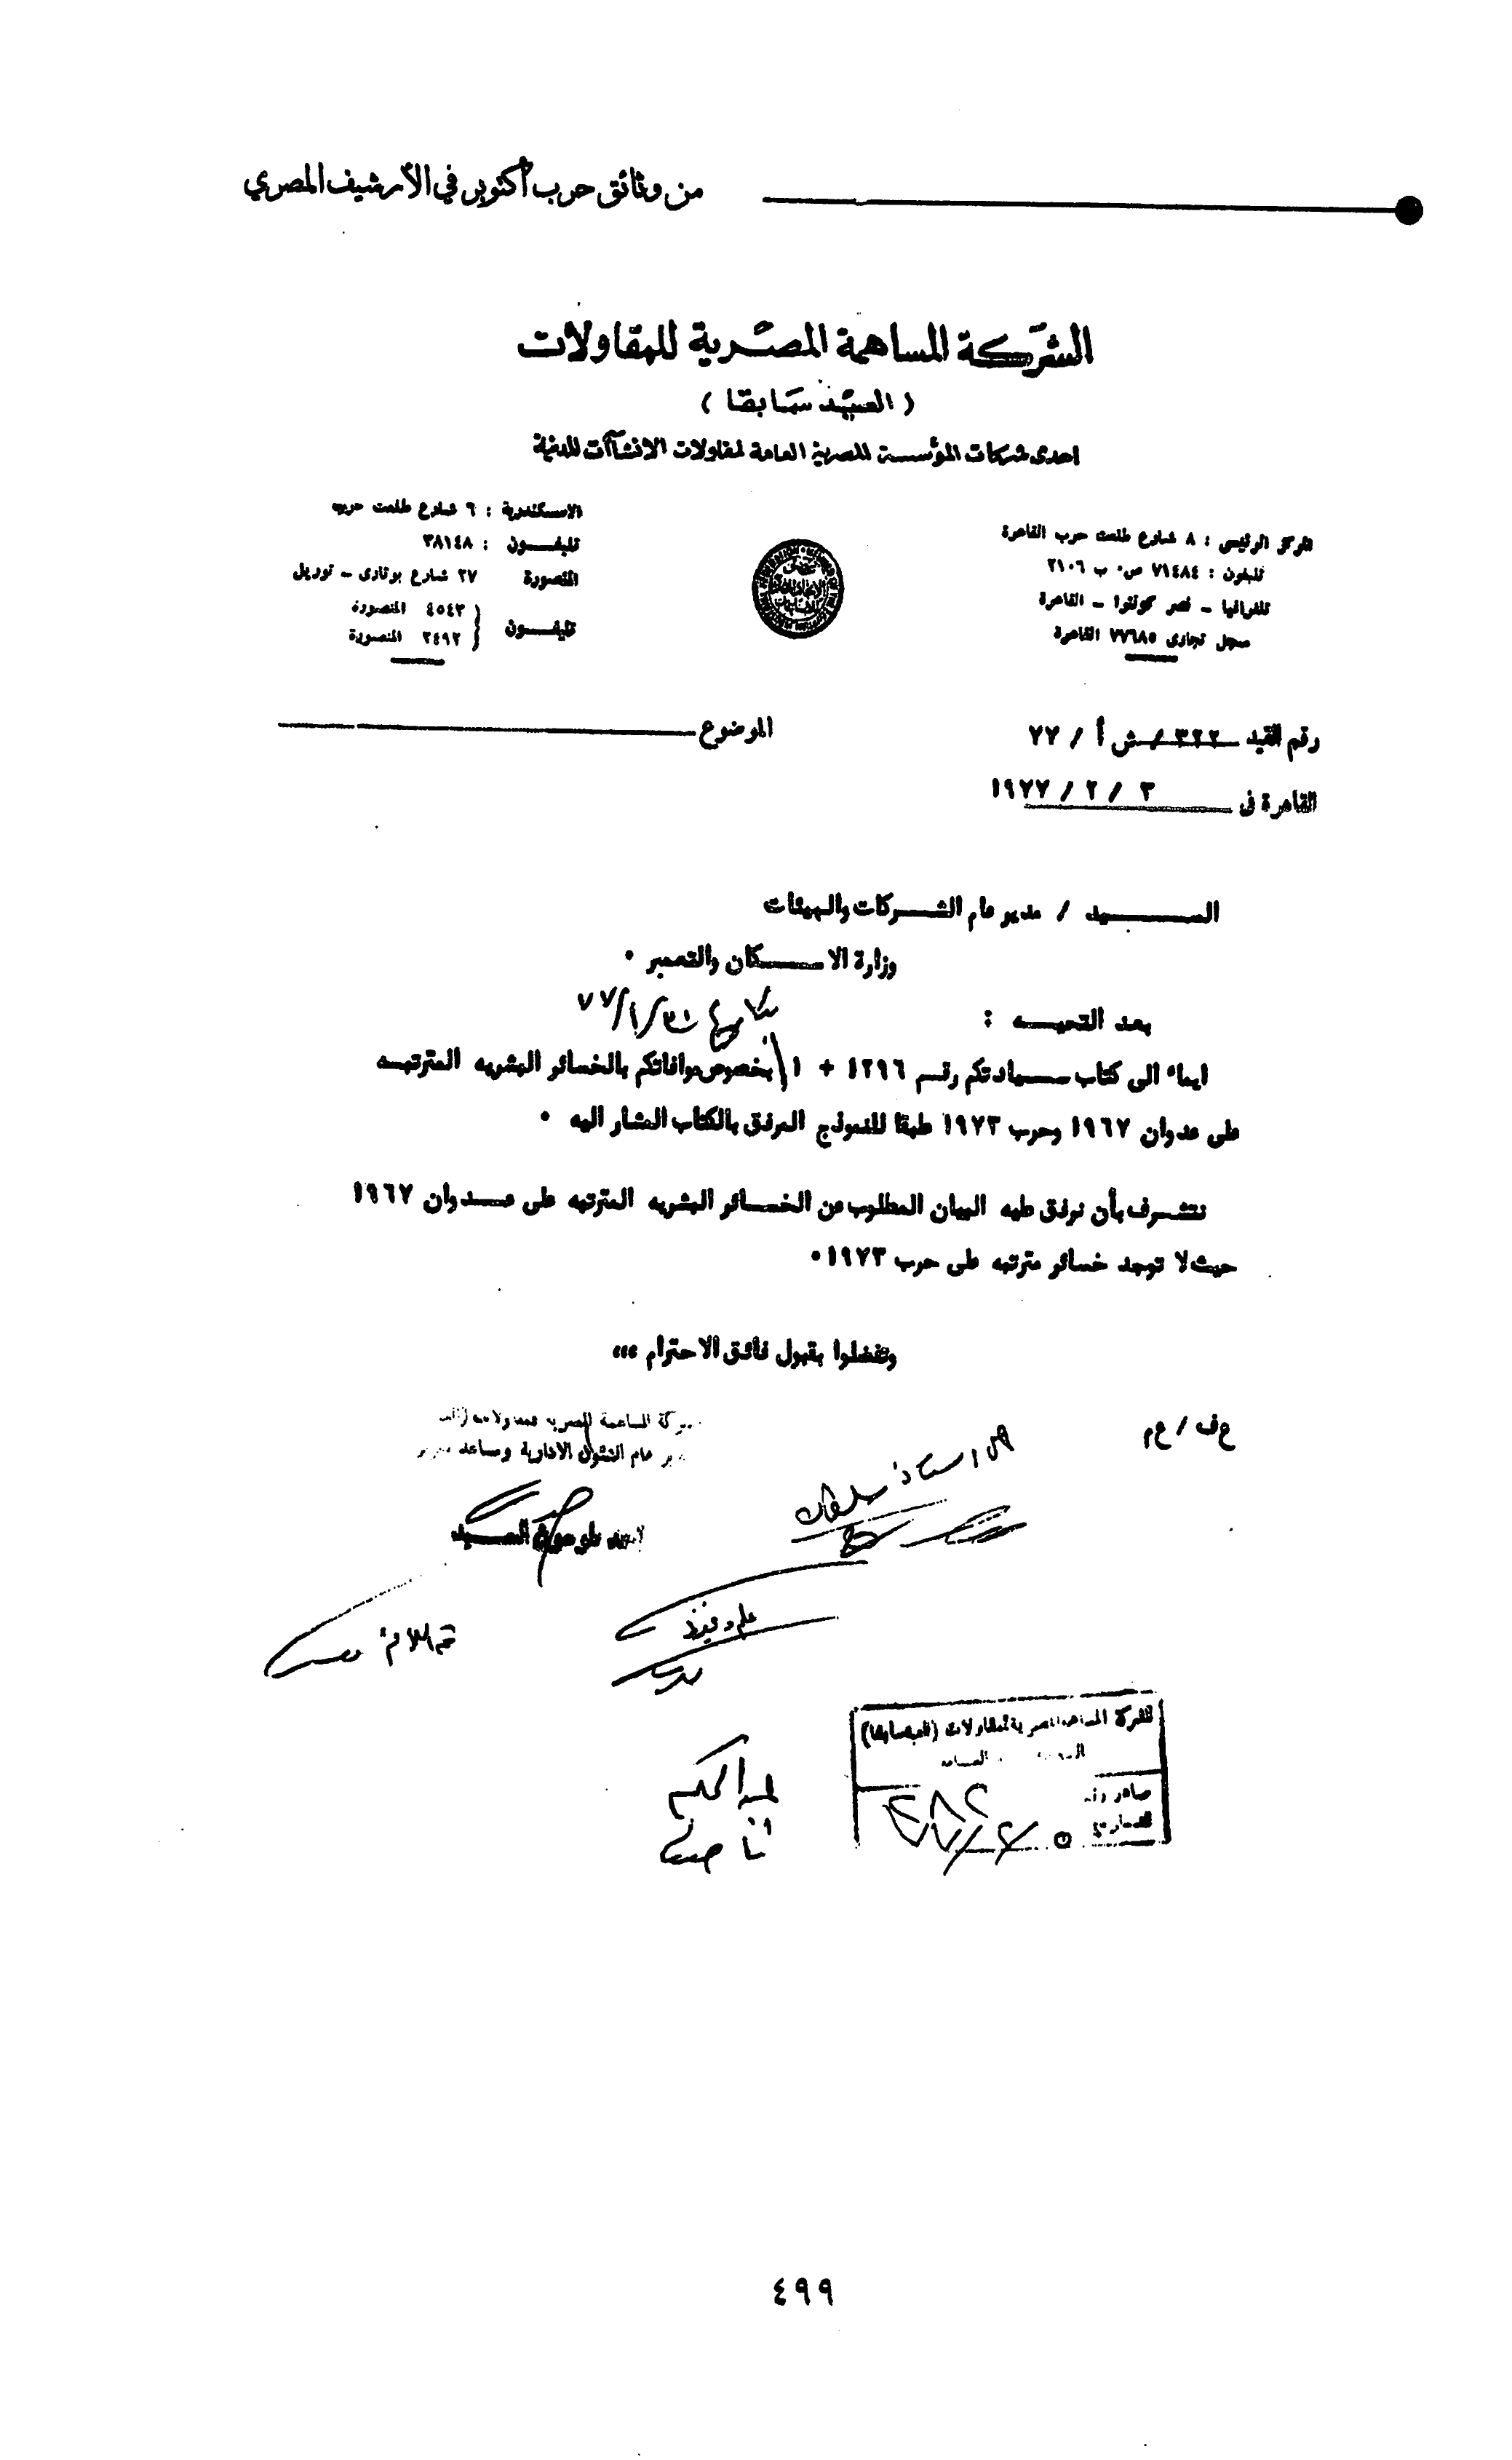 من وثائق حرب أكتوبر في الأرشيف المصري
الشركة المساهمة المصرية للمقاولات
( العبد سابقا )
احدى شركات المؤسسة المصرية العامة لمقاولات الانشاآت المدنية
المركز الرئيسى : ٨ شارع طلعت حرب القاهرة
تليفون : ٧١٤٨٤ ص٠ ب ٢١٠٦
تلغرافيا - نصر كونترا - القاهرة
سجل تجارى ٧٧٦٨٥ القاهرة
الاسكندرية : ٦ شارع طلعت حرب
تليفون : ٣٨١٤٨
المنصورة ٢٧ شارع بوتارى - توريل
تليفون ٤٥٤٣ المنصورة
٢٤٩٢ المنصورة
رقم القيد ٣٢٢ / ش أ / ٧٧
الموضوع
القاهرة فى ٣ / ٢ / ١٩٧٧
السيد / مدير عام الشركات والهيئات
وزارة الاسكان والتعمير ٠
بعد التحيه :
٧٧/١/٣١
ايماء الى كتاب سيادتكم رقم ١٢٩٦ + ١ بخصوص موافاتكم بالخسائر البشريه المترتبه
على عدوان ١٩٦٧ وحرب ١٩٧٣ طبقا للنموذج المرفق بالكتاب المشار اليه ٠
نتشرف بأن نرفق طيه البيان المطلوب عن الخسائر البشريه المترتبه على عدوان ١٩٦٧
حيث لا توجد خسائر مترتبه على حرب ١٩٧٣٠
وتفضلوا بقبول فائق الاحترام ،،،
ع ف / ع م
عام الشئون الادارية ومساعد
الشركة المساهمة المصرية لمقاولات (العبد سابقا)
صادر رقم
٤٩٩